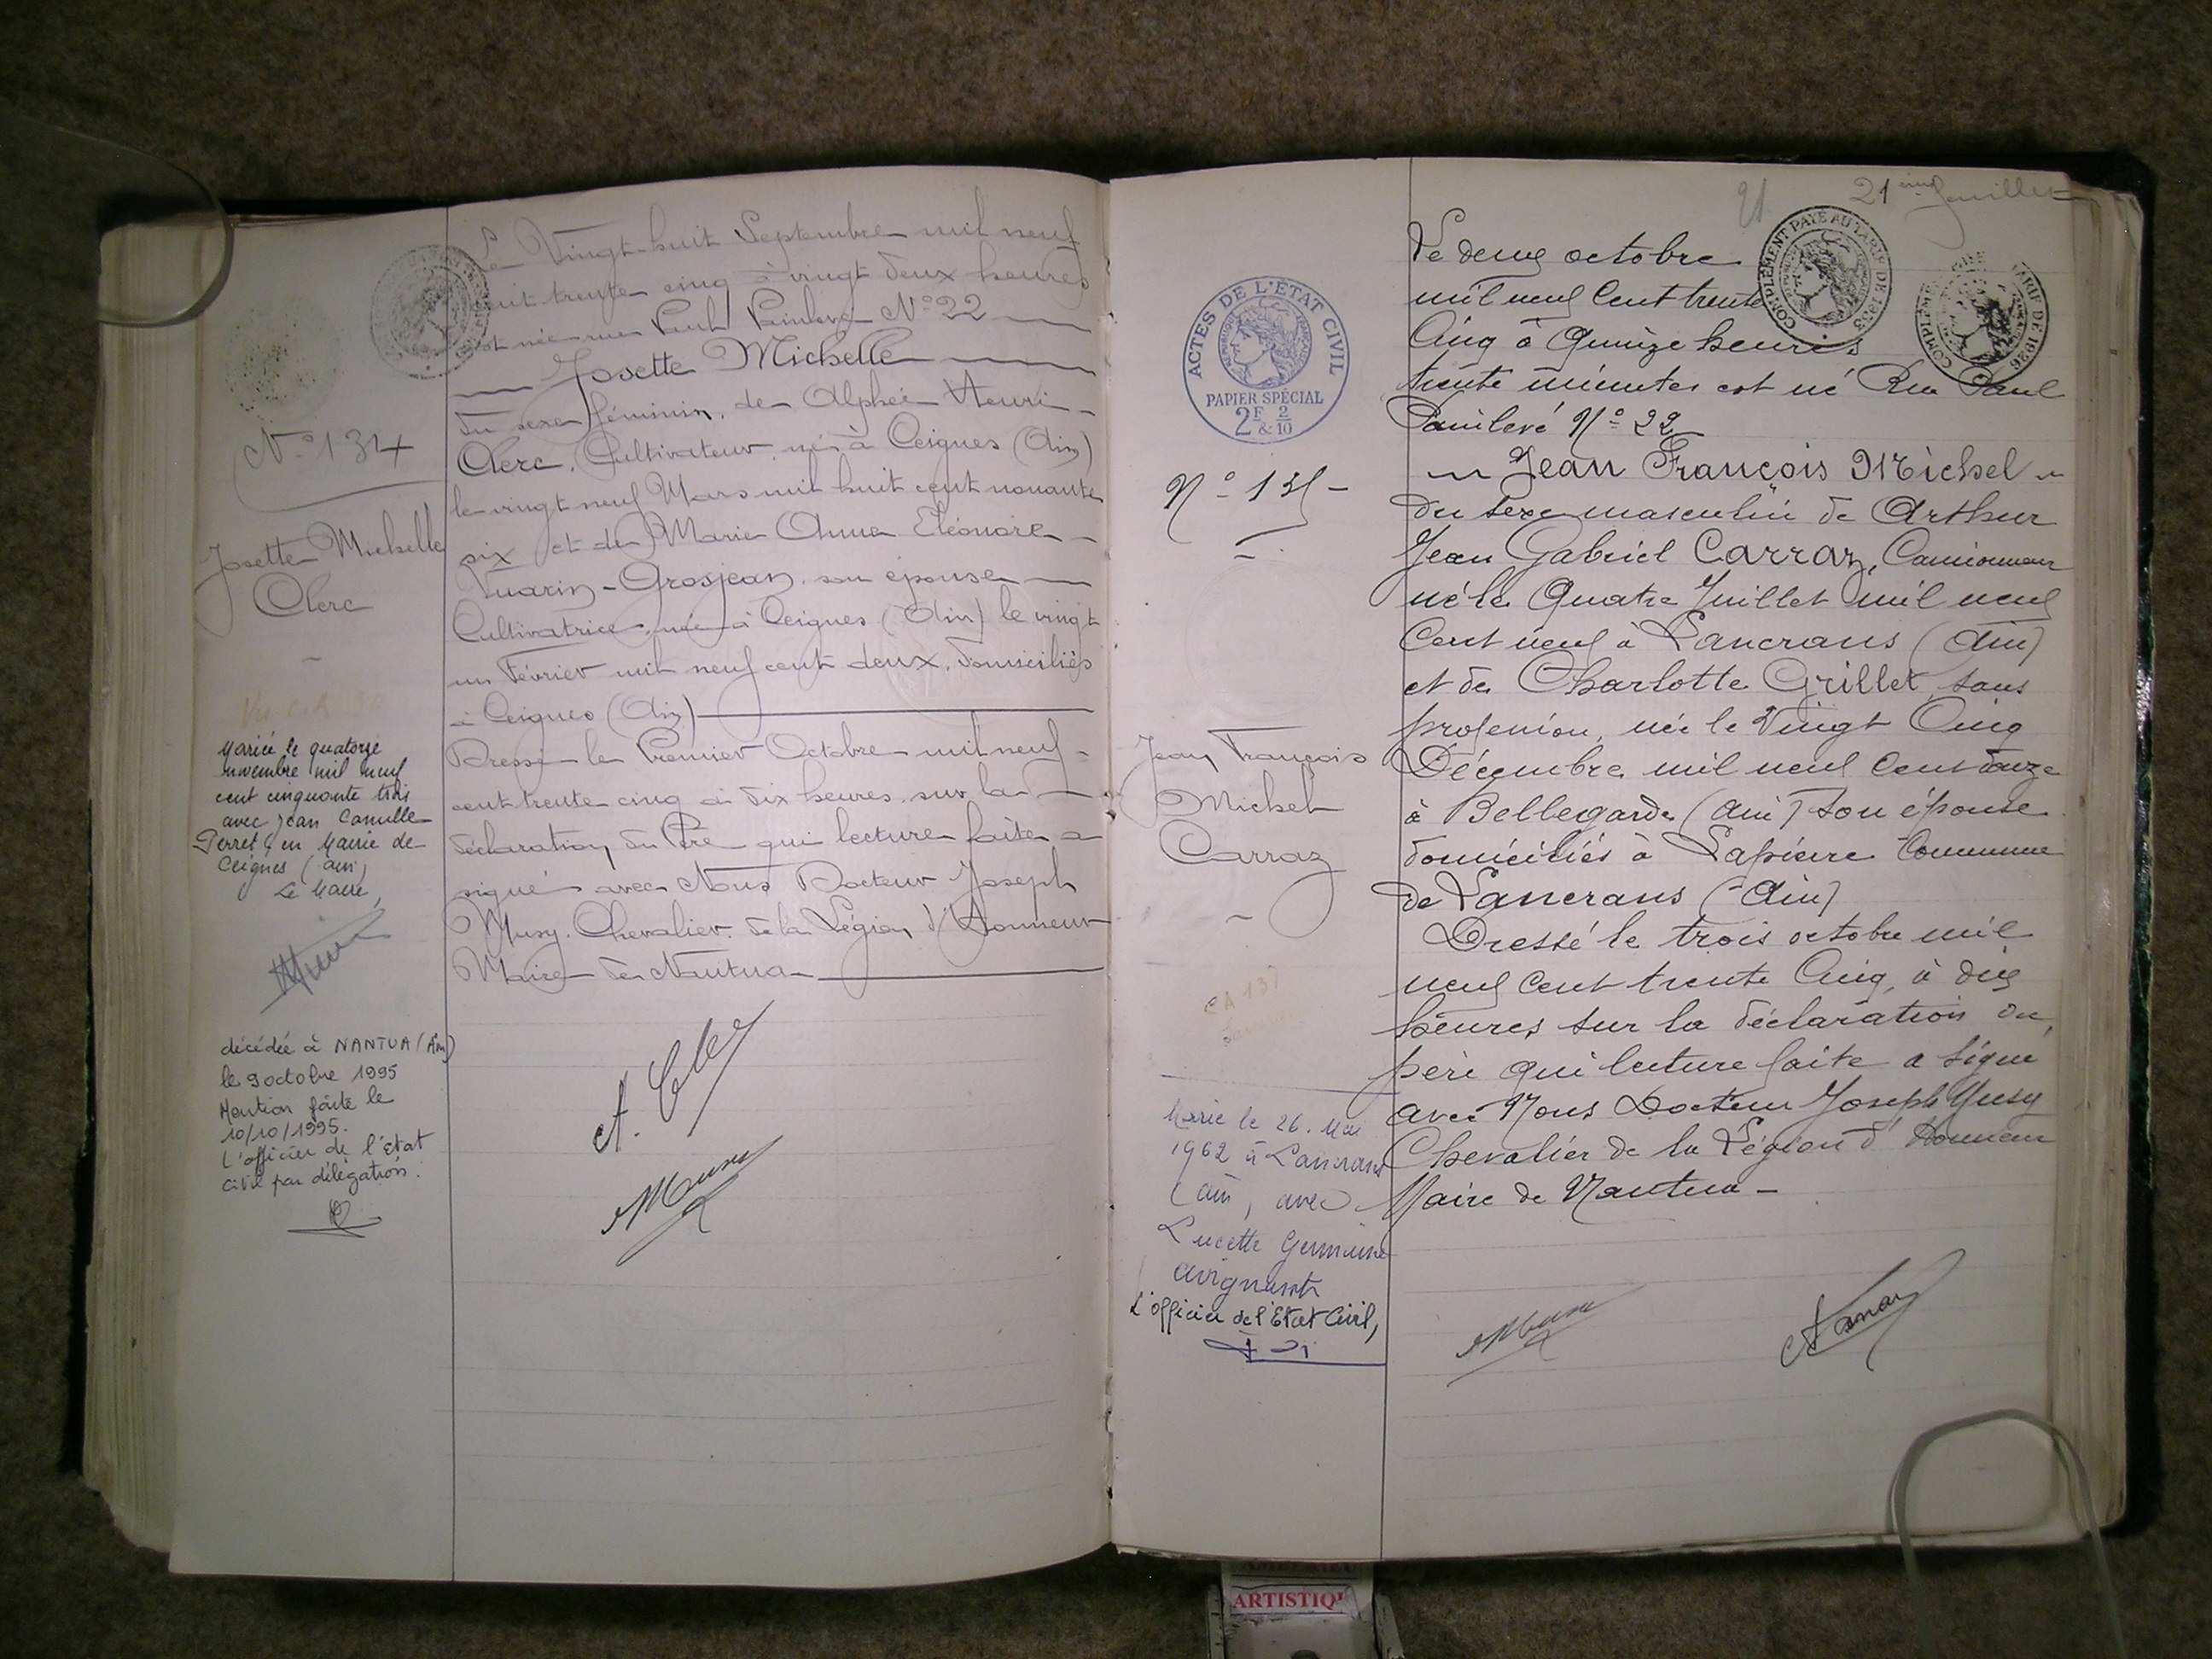 Le Vingt-huit Septembre mil neuf
cent trente cinq à vingt deux heures
est née rue Paul Painlevé N° 22
Josette Michelle
du sexe féminin, de Alphée Henri
Clerc, Cultivateur, né à Ceignes (Ain)
le vingt neuf Mars mil huit cent nonante
six et de Marie Anna Eléonore
Vuarin-Grosjean, son épouse
Cultivatrice, née à Ceignes (Ain) le vingt
un Février mil neuf cent deux, domiciliés
à Ceignes (Ain)
Dressé le Premier Octobre mil neuf
cent trente cinq à dix heures, sur la
déclaration du Père qui lecture faite a
signé avec Nous Docteur Joseph
Musy, Chevalier de la Légion d'Honneur
Maire de Nantua
N° 134
Josette Michelle
Clerc
Mariée le quatorze
novembre mil neuf
cent cinquante trois
avec Jean Camille
Perret en Mairie de
Ceignes (Ain)
Le Maire,
décédée à NANTUA (Ain)
le 9 octobre 1995
Mention faite le
10/10/1995.
L'officier de l'Etat
civil par délégation.
21
21ème feuillet
COMPLÉMENT PAYÉ AU TARIF DE 1933
TARIF DE 1926
ACTES DE L'ÉTAT CIVIL
PAPIER SPÉCIAL
2F & 2/10
N° 135
Jean François
Michel
Carraz
Marié le 26. Mai
1962 à Lancrans
(Ain), avec
Lucette Germaine
L'officier de l'Etat Civil,
Le deux octobre
mil neuf Cent trente
Cinq à Quinze heures
trente minutes est né Rue Paul
Painlevé N° 22
Jean François Michel
du sexe masculin de Arthur
Jean Gabriel Carraz, Camionneur
né le Quatre Juillet mil neuf
Cent neuf à Lancrans (Ain)
et de Charlotte Grillet, sans
profession, née le Vingt Cinq
Décembre mil neuf Cent douze
à Bellegarde (Ain) son épouse
domiciliés à Lapierre Commune
de Lancrans (Ain)
Dressé le trois octobre mil
neuf Cent trente Cinq, à dix
heures sur la déclaration du
père qui lecture faite a signé
avec Nous Docteur Joseph Musy
Chevalier de la Légion d'Honneur
Maire de Nantua
ARTISTIQU